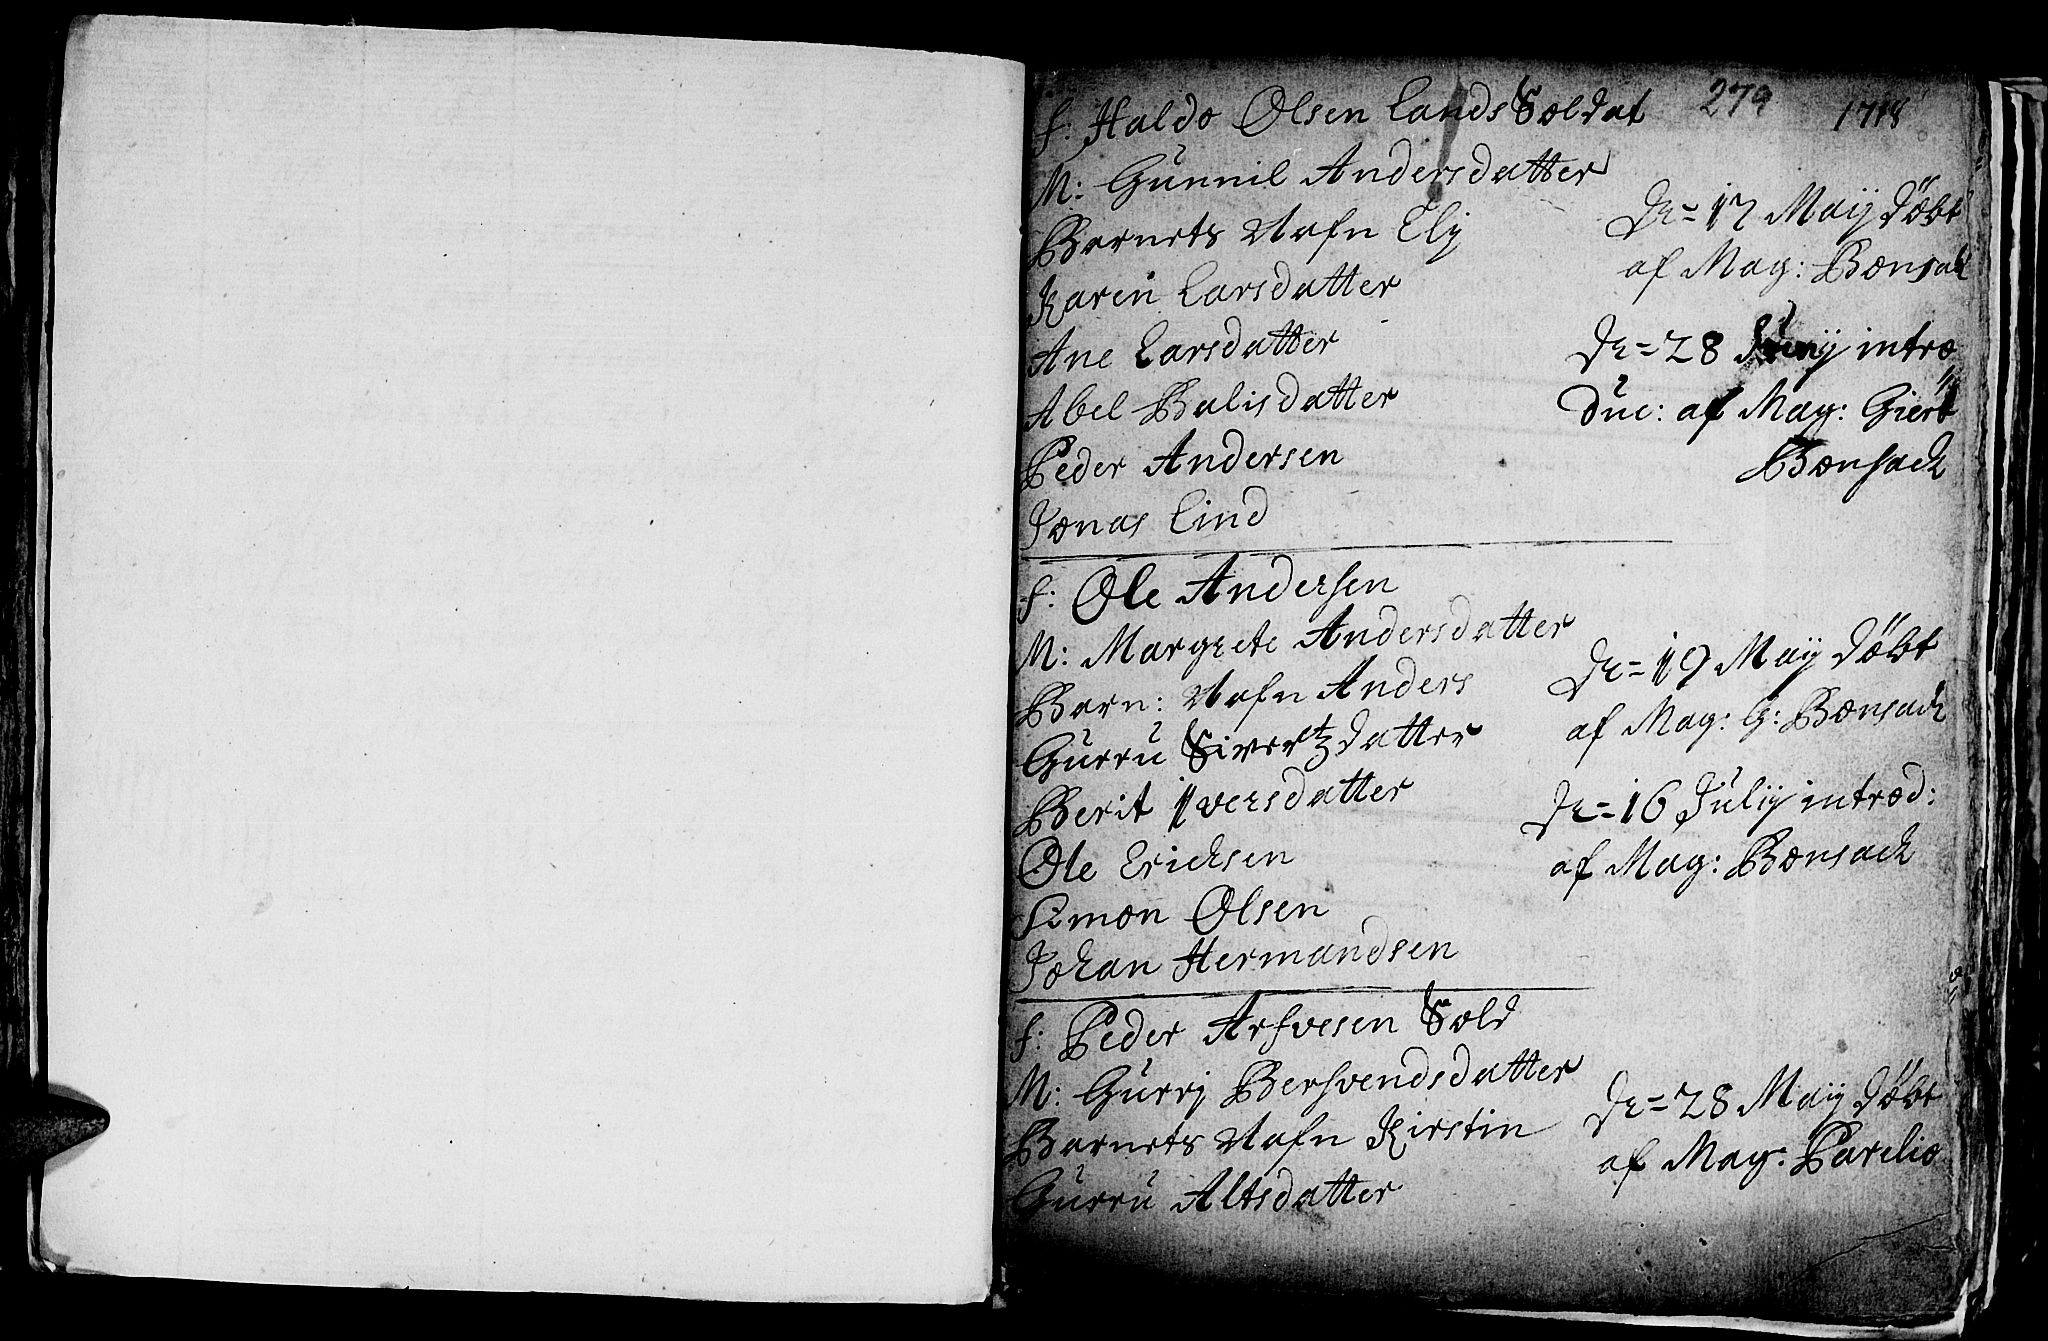 279 1718
f: Haldo Olsen Lands Soldat
M: Gunnil Andersdatter
Barnets Nafn Elij
Karen Larsdatter
Ane Larsdatter
Abel Balisdatter
Peder Andersen
Jonas Lind
De= 17 Maij döbt
af Mag: Bonsach
De= 28 Junij intro
duc: af Mag: Giert
Bonsach
f: Ole Andersen
M: Margrete Andersdatter
Barn: Nafn Anders
Gurru Sivertzdatter
Berit Iversdatter
Ole Erichsen
Simon Olsen
Johan Hermandsen
De= 19 Maij döbt
af Mag: G: Bonsach
De= 16 Julij introd:
af Mag: Bonsach
f: Peder Arfvesen Sold
M: Gurrj Bersvendsdatter
Barnets Nafn Kirstin
Gurru Altsdatter
De= 28 Maij döbt
af Mag: Parelio